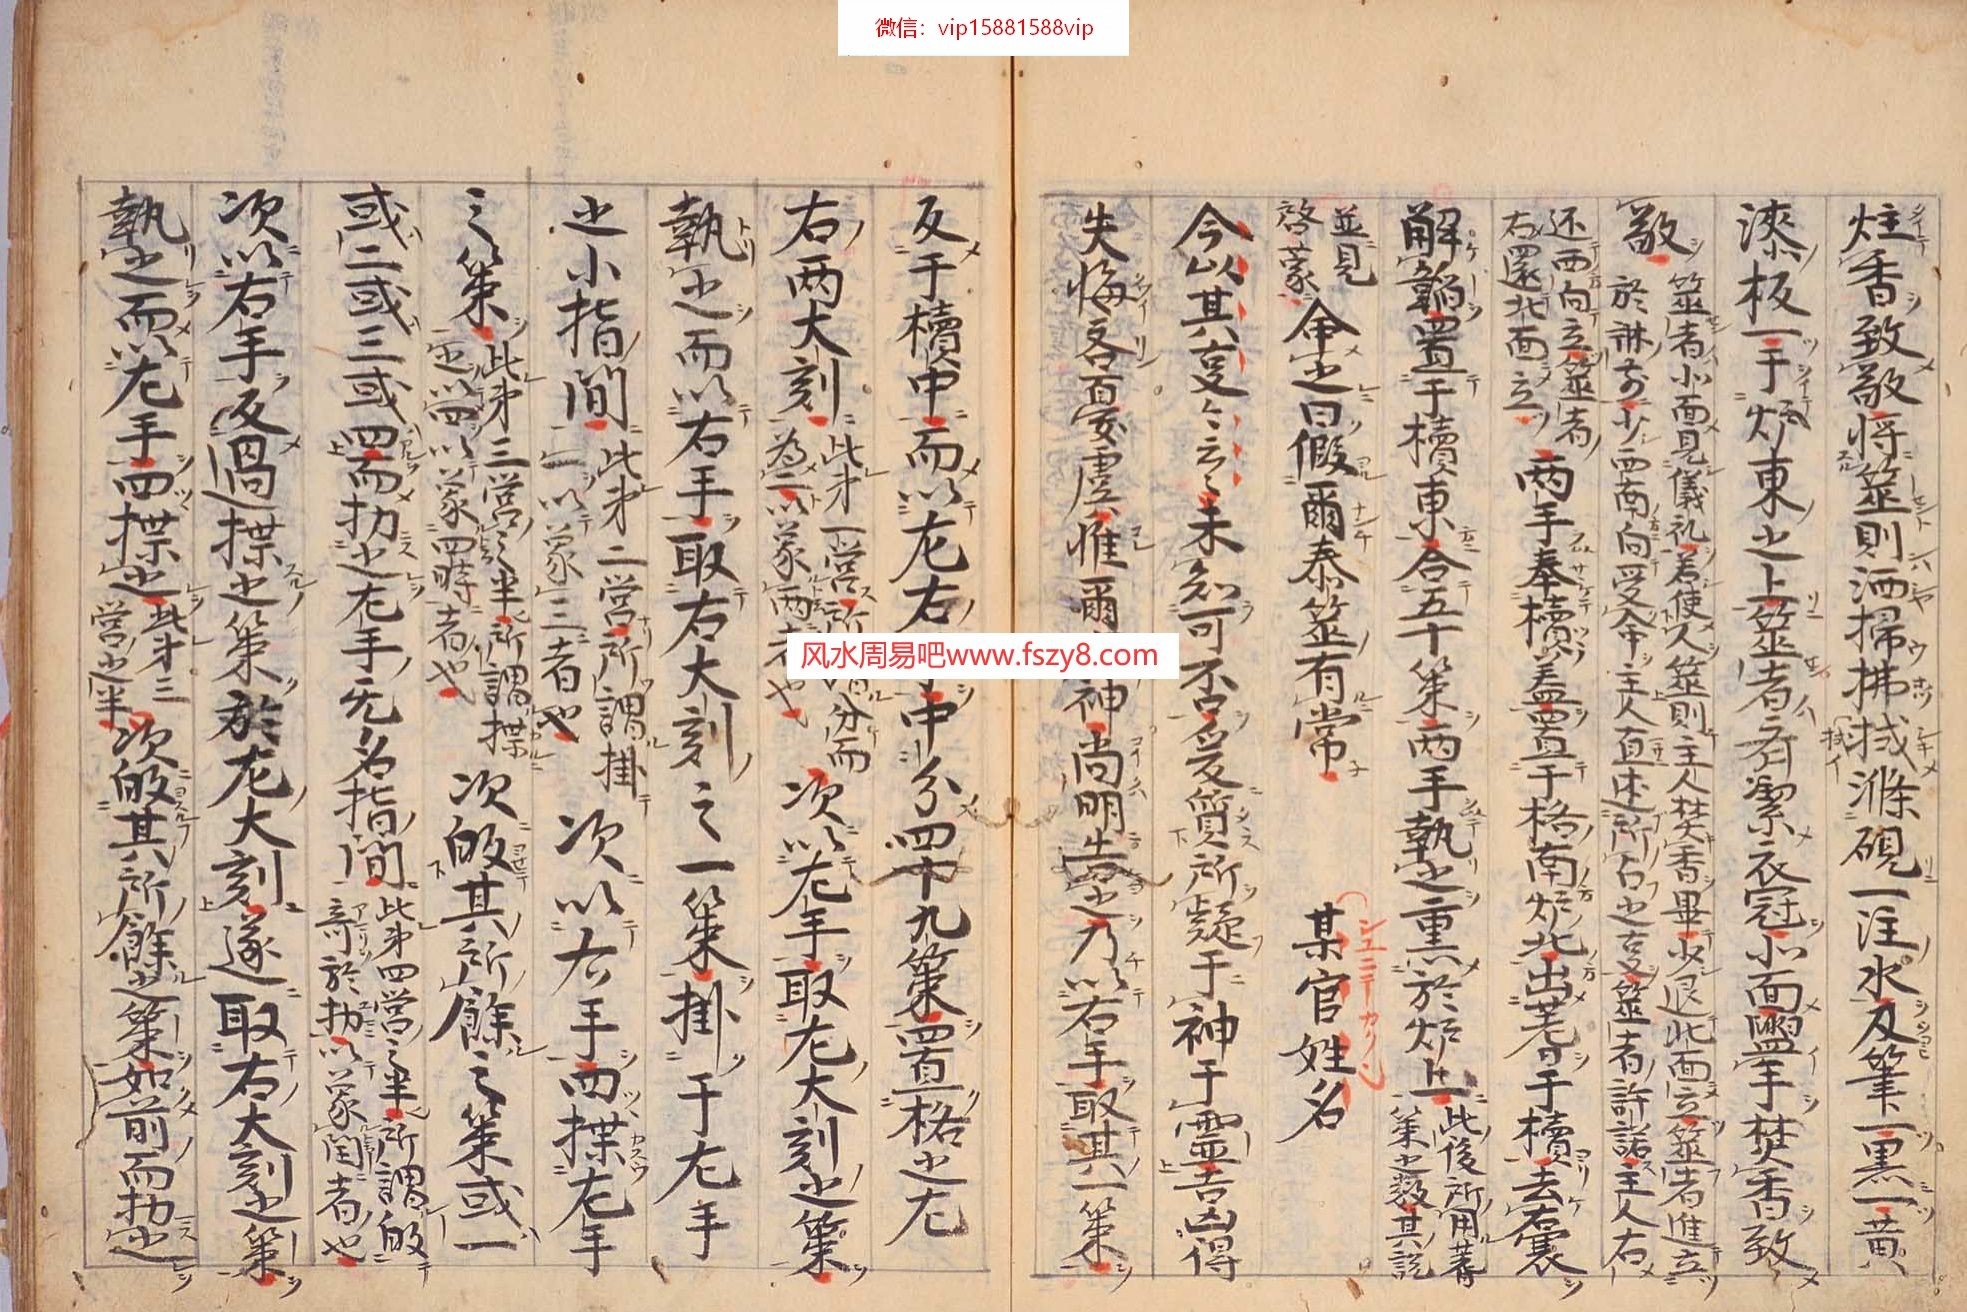 微信：vip15881588vip
炷香致敬將筮則洒掃拂拭滌硯一注水及筆一黒一黃
漆板一于炉東之上筮者斉潔衣冠北面盥手焚香致
敬
筮者北面見儀礼若使人筮則主人焚香畢少退北面立筮者進立
於牀前少西南向受命主人直述所占之事筮者許諾主人右
还西向立筮者
右還北面立
两手奉櫝盖置于格南炉北出蓍于櫝去囊
解韜置于櫝東合五十策两手執之熏於炉上
此後所用蓍
策之数其説
並見
啓蒙
命之曰假爾泰筮有常
某官姓名
今以某事云云未知可否爰質所疑于神于霊吉凶得
失悔吝憂虞惟爾神尚明告之乃以右手取其一策
反于櫝中而以左右手中分四十九策置格之左
右两大刻
此才一営所謂分而
為二以象两者也
次以左手取左大刻之策
執之而以右手取右大刻之一策掛于左手
之小指間
此才二営所謂掛
一以象三者也
次以右手四揲左手
之策
此弟三営之半所謂揲
之以四以象四時者也
次皈其所餘之策或一
或二或三或四而扐之左手无名指間
此弟四営之半所謂皈
奇於扐以象閏者也
次以右手反過揲之策於左大刻遂取右大刻之策
執之而以左手四揲之
此才三
営之半
次皈其所餘之策如前而扐之
风水周易吧www.fszy8.com